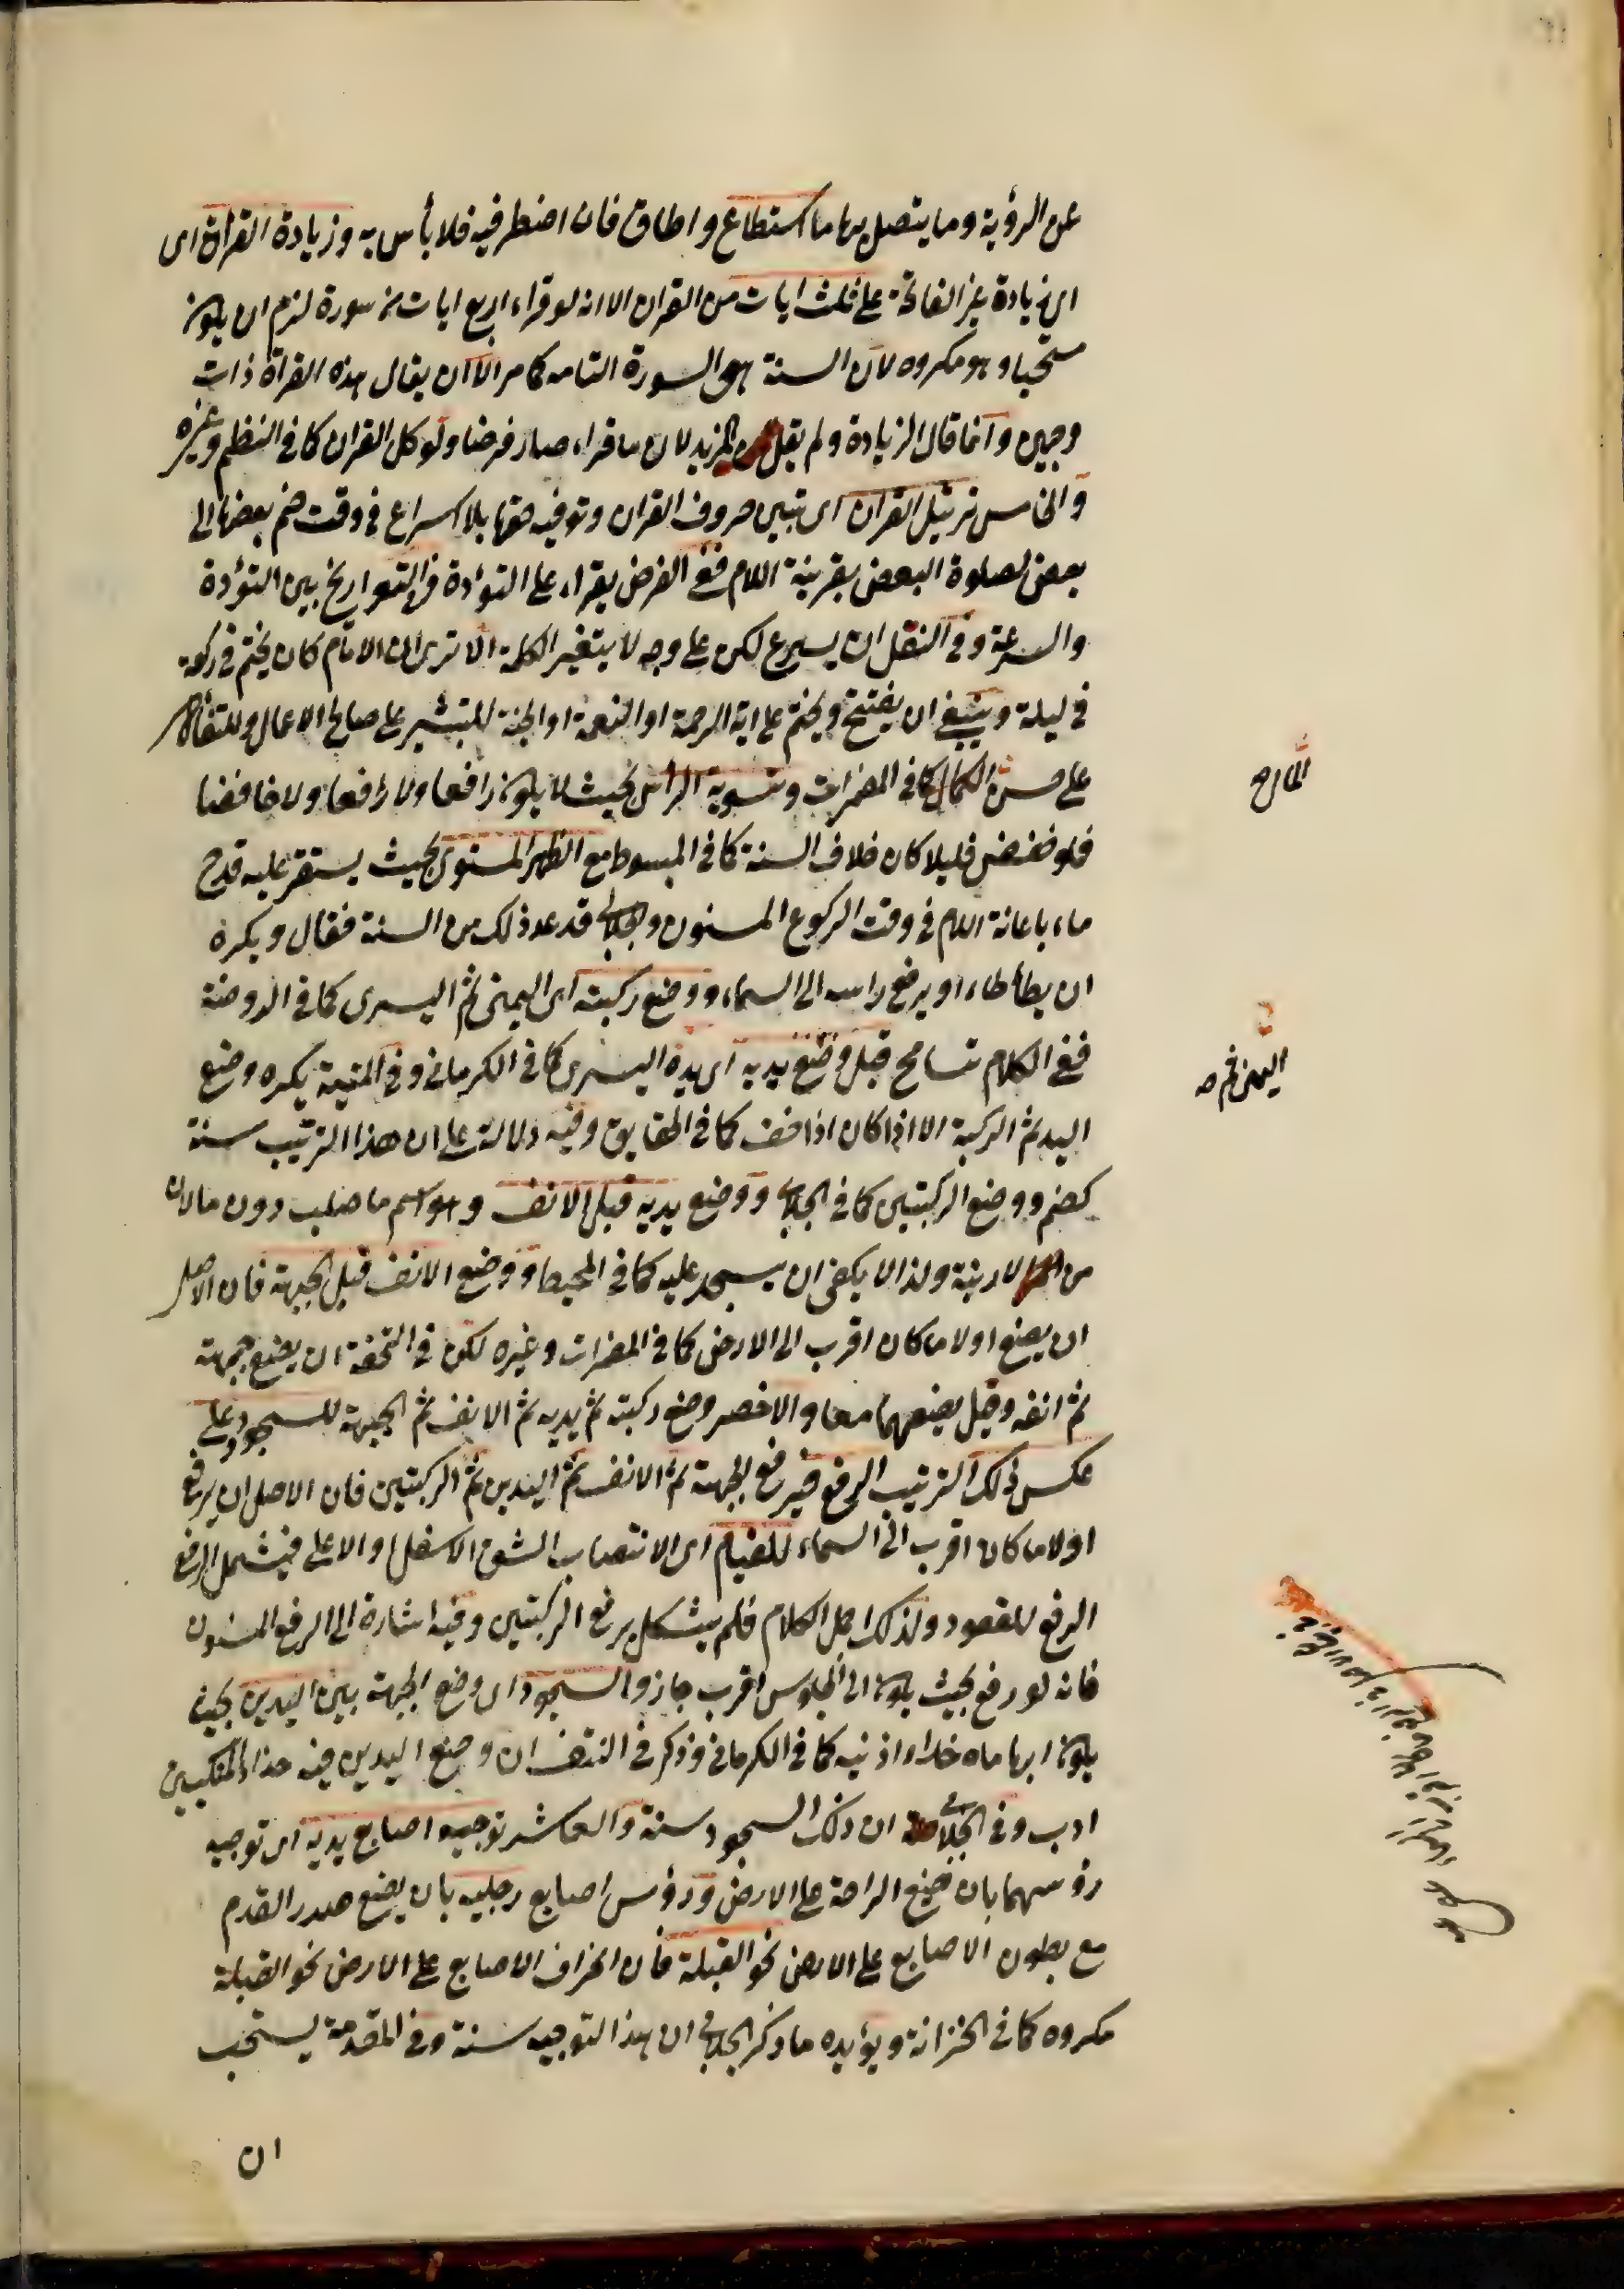 عن الرؤية وما يتصل بها ما استطاع واطاق فان اضطر فيه فلا بأس به وزيادة القرأة اى
اى زيادة غير الفاتحة على ثلث ايات من القران الا انه لو قراء اربع ايات من سورة لزم ان يكون
مستحبا وهو مكروه لان السنة هى السورة التامه كما مر الا ان يقال هذه القرأة ذات
وجهين وانما قال الزيادة ولم يقل المزيد لان ما قراء صار فرضا ولو كل القران كما فى النظم وغيره
والخامس ترتيل القران اى تبيين حروف القران وتوفيه حقها بلا اسراع فى وقت ضم بعضها الى
بعض لصلوة البعض بقرينة اللام ففى الفرض يقراء على التؤدة وفى التراويح بين التؤدة
والسرعة وفى النفل ان يسرع لكن على وجه لا يتغير الكلمة الا ترى ان الامام كان يختم فى ركعة
فى ليلة وينبغى ان يفتتح ويختم على اية الرحمة او النعمة او الجنة للتبشير على صالح الاعمال وللتفأل
على حسن كما فى المضمرات وتسوية الراس بحيث لا يكون رافعا ولا رافعا ولا خافضا
فلو خفض قليلا كان خلاف السنة كما فى المبسوط مع الظهر المستوى بحيث يستقر عليه قدح
ماء باعانة اللام فى وقت الركوع المسنون والجلابى قد عد ذلك من السنة فقال ويكره
ان يطأطاء او يرفع راسه الى السماء ووضع ركبته اى اليمنى ثم اليسرى كما فى الروضة
ففى الكلام تسامح قبل وضع يديه اى يده اليسرى كما فى الكرمانى وفى المنية يكره وضع
اليد ثم الركبة الا اذا كان اذا خف كما فى الحقايق وفيه دلالة على ان هذا الترتيب سنة
كضم ووضع الركبتين كما فى الجلابى ووضع يديه قبل الانف وهو اسم ما صلب دون ما لان
من الارنبة ولذا لا يكفى ان يسجد عليه كما فى المحيط ووضع الانف قبل الجبهة فان الاصل
ان يضع اولا ما كان اقرب الى الارض كما فى المضمرات وغيره لكن فى التحفة ان يضع جبهته
ثم انفه وقيل يضعهما معا والاخصر وضع ركبته ثم يديه ثم الانف ثم الجبهة للسجود وعلى
عكس ذلك الترتيب الرفع فيرفع الجبهة ثم الانف ثم اليدين ثم الركبتين فان الاصل ان يرفع
اولا ما كان اقرب الى السماء للقيام اى الانتصاب الشق الاسفل او الاعلى فيشمل الرفع
الرفع للقعود ولذلك اجمل الكلام فلم يشكل برفع الركبتين وفيه اشارة الى الرفع المسنون
فانه لو رفع بحيث يكون الى الجلوس اقرب جاز والسجود اى وضع الجبهة بين اليدين بحيث
يكون ابهاماه حذاء اذنيه كما فى الكرمانى وذكر فى النتف ان وضع اليدين فيه حذاء المنكبين
ادب وفى الجلابى ان ذلك السجود سنة والعاشر توجيه اصابع يديه اى توجيه
رؤسهما بان يضع الراحة على الارض ورؤس اصابع رجليه بان يضع صدر القدم
مع بطون الاصابع على الارض نحو القبلة فان انحراف الاصابع على الارض نحو القبلة
مكروه كما فى الخزانة ويؤيده ما ذكر الجلابى ان هذا التوجيه سنة وفى المقدمة يستحب
ان
اليمنى ثم صح